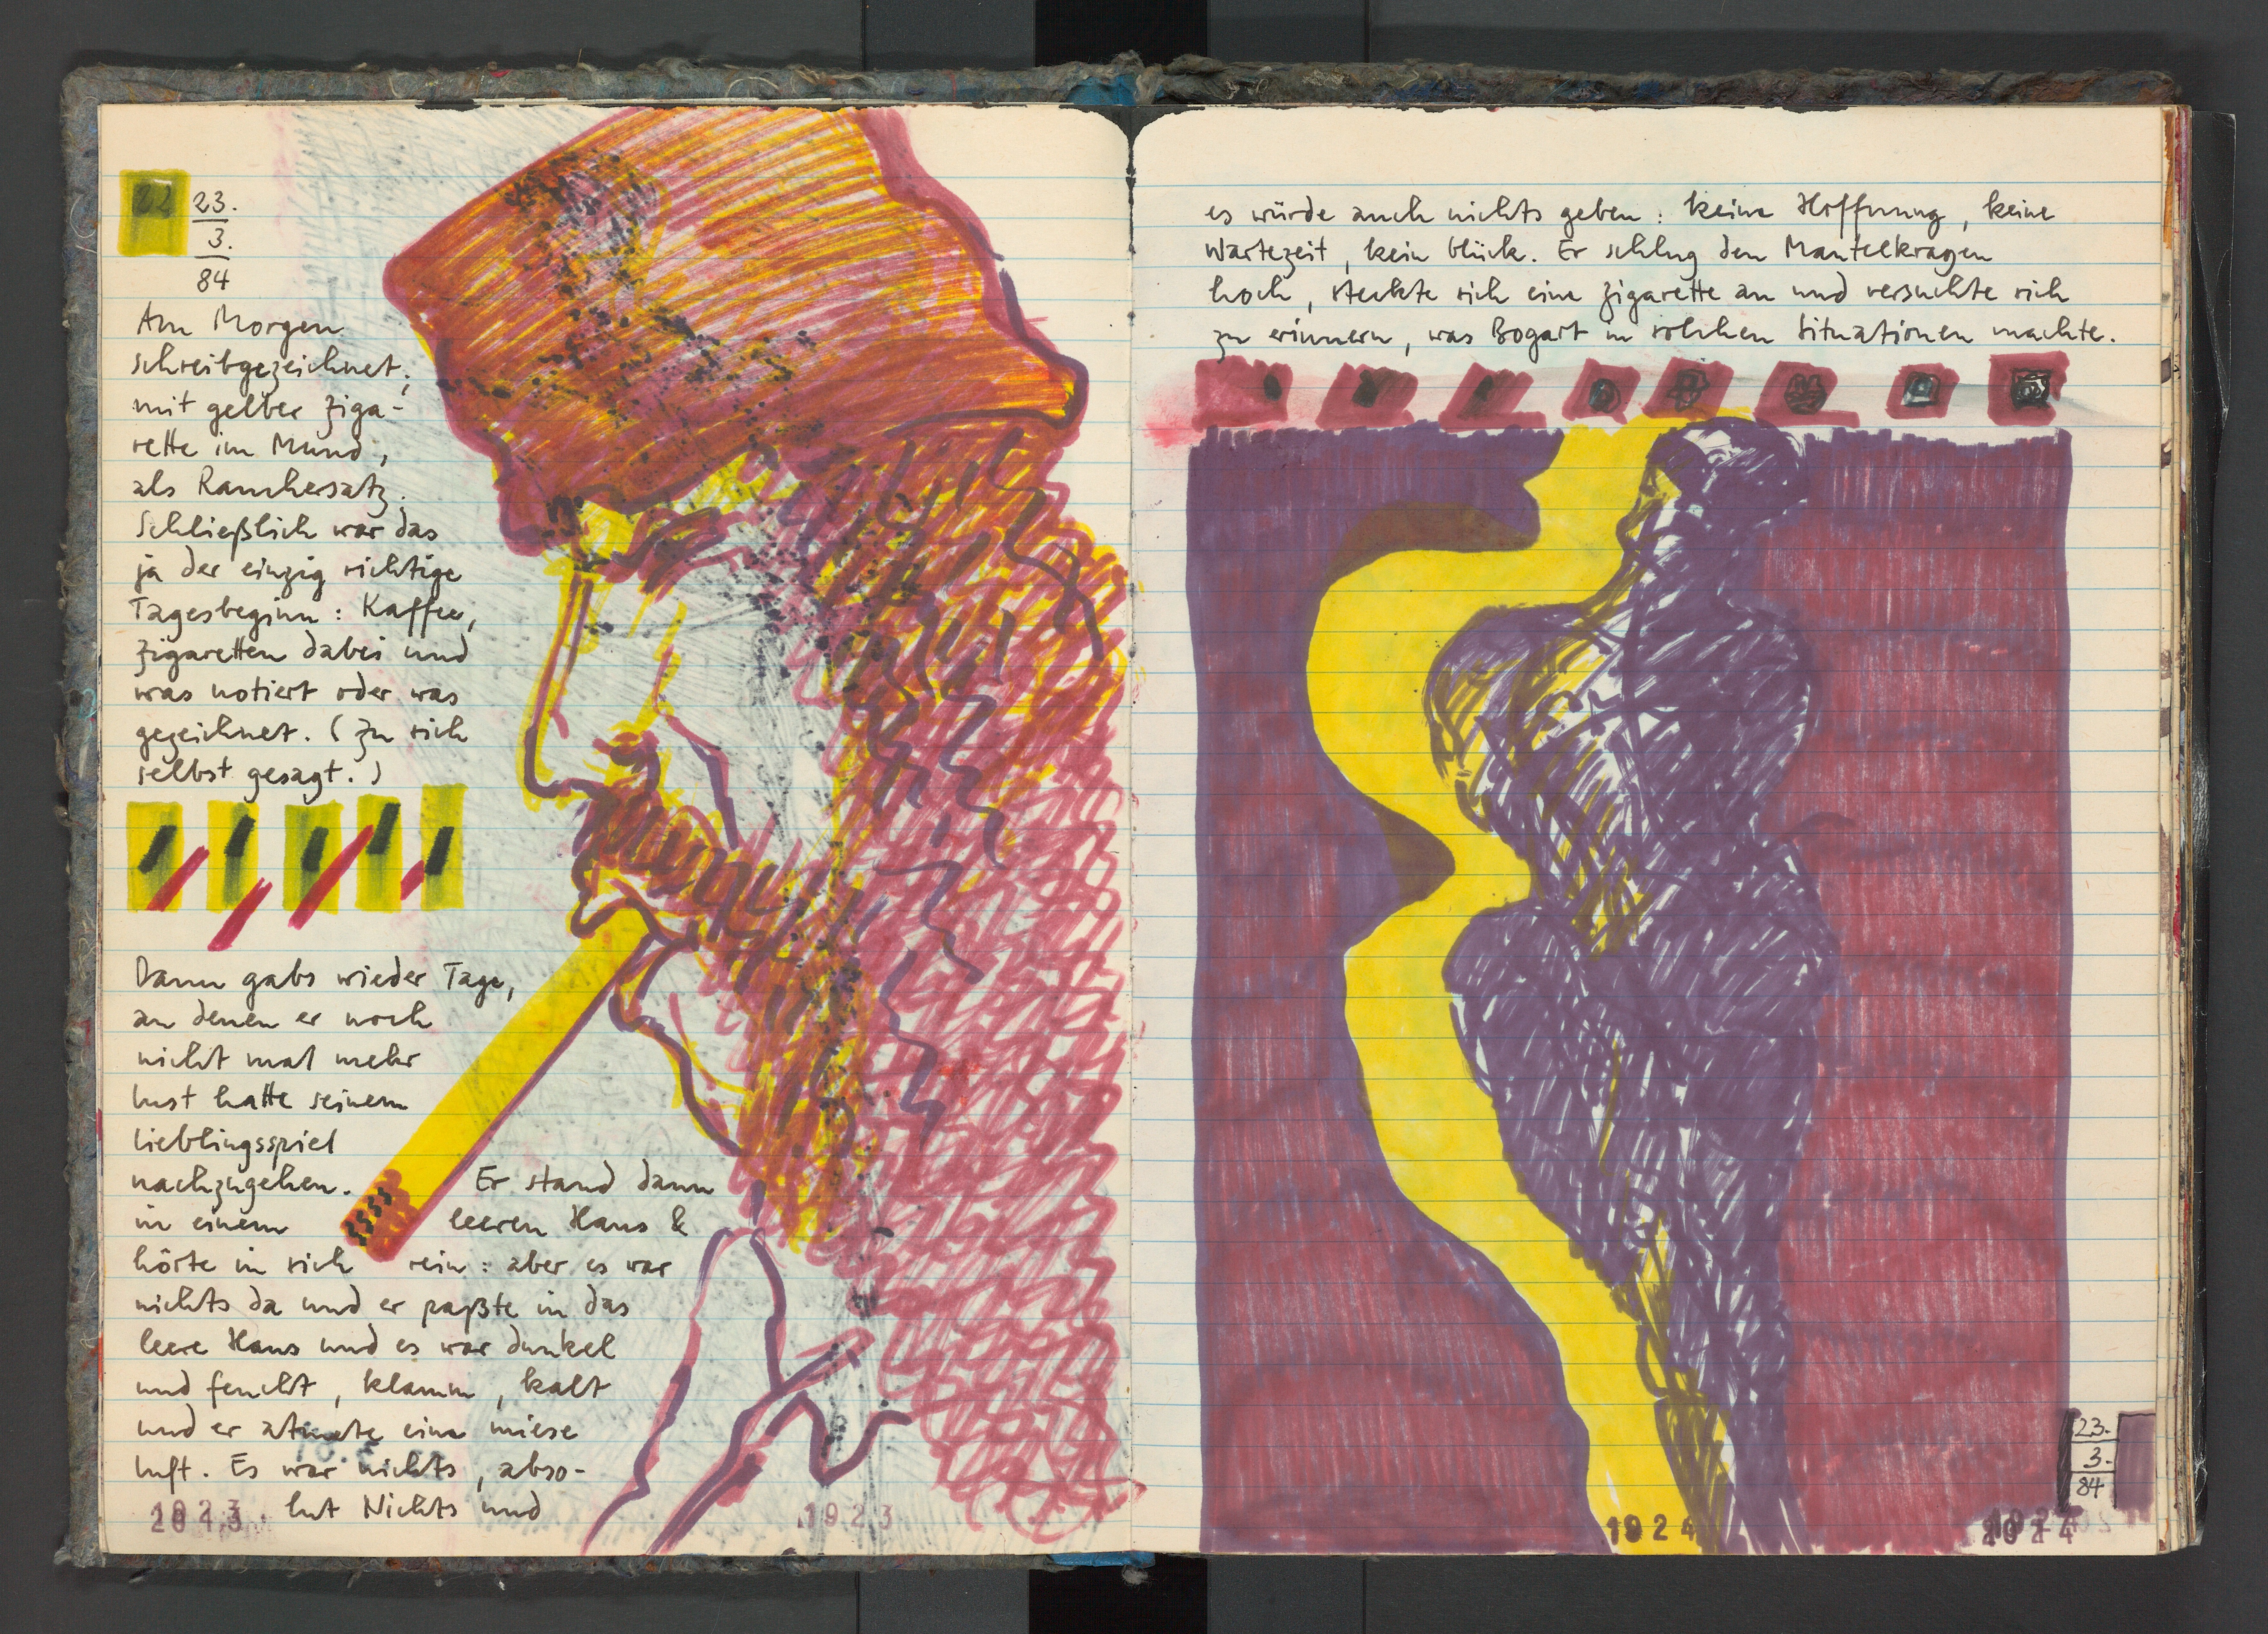 23.
3.
84
Am Morgen
schreibgezeichnet;
mit gelber Ziga-
rette im Mund,
als Rauchersatz.
Schließlich war das
ja der einzig richtige
Tagesbeginn: Kaffee,
Zigaretten dabei und
was notiert oder was
gezeichnet. (Zu sich
selbst gesagt.)
Dann gabs wieder Tage,
an denen er noch
nicht mal mehr
Lust hatte seinem
Lieblingsspiel
nachzugehen. Er stand dann
in einem leeren Haus &
hörte in sich rein: aber es war
nichts da und er paßte in das
leere Haus und es war dunkel
und feucht, klamm, kalt
und er atmete eine miese
Luft. Es war nichts, abso-
lut Nichts und
1923
es würde auch nichts geben: keine Hoffnung, keine
Wartezeit, kein Glück. Er schlug den Mantelkragen
hoch, steckte sich eine Zigarette an und versuchte sich
zu erinnern, was Bogart in solchen Situationen machte.
23.
3.
84
1924